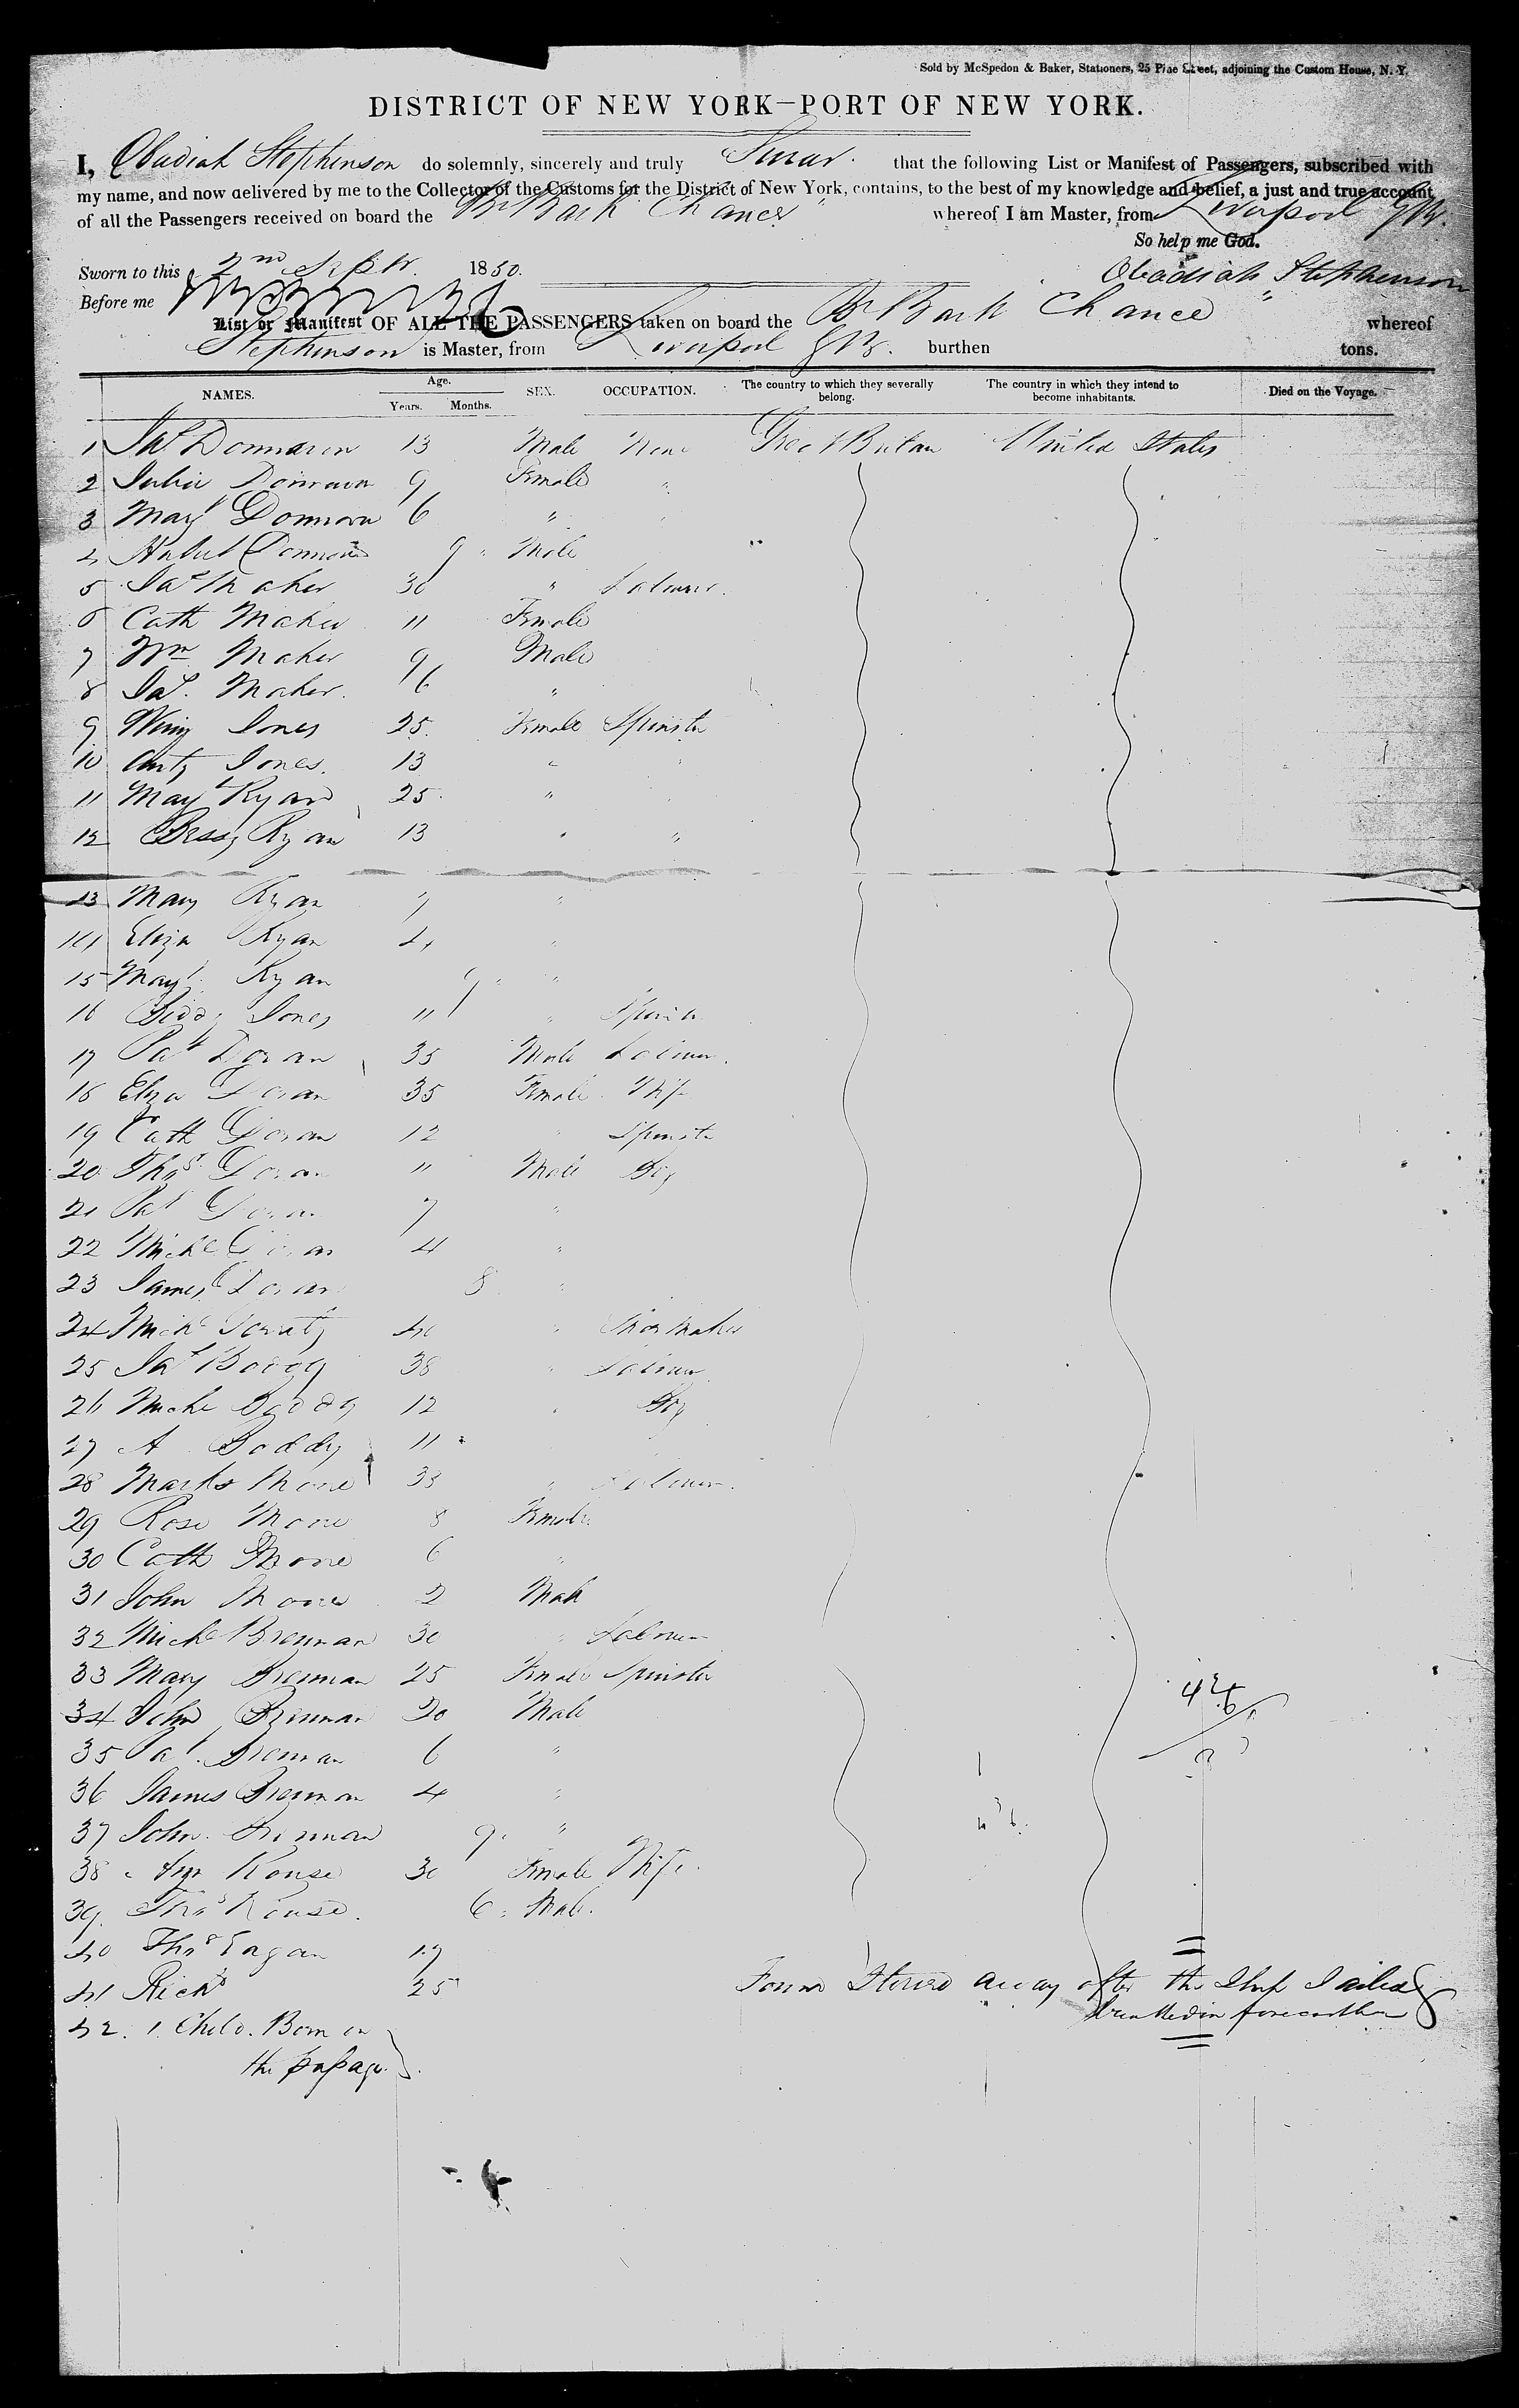 Sold by McSpedon & Baker, Stationers, 25 Pine Street, adjoining the Custom House, N. Y.
DISTRICT OF NEW YORK—PORT OF NEW YORK.
I, Obadiah Stephinson do solemnly, sincerely and truly Swear that the following List or Manifest of Passengers, subscribed with
my name, and now delivered by me to the Collector of the Customs for the District of New York, contains, to the best of my knowledge and belief, a just and true account
of all the Passengers received on board the Br Bark Chance whereof I am Master, from Liverpool GB.
So help me God.
Sworn to this 2nd Sepbr. 1850.
Obadiah Stephinson
Before me
List or Manifest OF ALL THE PASSENGERS taken on board the Br Bark Chance whereof
Stephinson is Master, from Liverpool GB. burthen tons.
NAMES. Age. Years. Months. SEX. OCCUPATION. The country to which they severally belong. The country in which they intend to become inhabitants. Died on the Voyage.
1 Donnavan 13 Male None Great Britain United States
2 Julia Donnavan 9 Female "
3 Mary Donnovan 6 "
4 9 Male
5 Maher 30 " Labourer.
6 Cath Maher 11 Female
7 Wm Maher 9 Male
8 Jas. Maher. 6 "
9 Winy Jones 25. Female Spinster
10 Jones. 13 "
11 Margt Ryan 25 "
12 Bessy Ryan 13 " "
13 Mary Ryan 7 "
14 Eliza Ryan 4 "
15 Margt. Ryan 9 "
16 Biddy Jones 11 " Spinster
17 Pat Doran 35 Male Labourer.
18 Eliza Doran 35 Female Wife
19 Cath Doran 12 Spinster
20 Thos Doran 11 Male Boy
21 Pat Doran 7 "
22 Michl Doran 4 "
23 James Doran 8 "
24 Michl 40 " Shoe Maker
25 Boddy 38 " Labourer
26 Michl Boddy 12 " Boy
27 A Boddy 11
28 Marks Mone 33 " Labourer.
29 Rose Mone 8 Female
30 Cath Mone 6 "
31 John Mone 2 Male
32 Michl Brennan 30 " Labourer
33 Mary Brennan 25 Female Spinster
34 John Brennan 20 Male
35 Pat. Brennan 6 "
36 James Brennan 4 "
37 John Brennan 9. "
38 Rouse 30 Female Wife.
39 Thos Rouse. 6 Male.
40 Thos Eagan 19
41 Richd 25 Found Stowed away after the Ship Sailed
42. 1. Child. Born on
the passage.